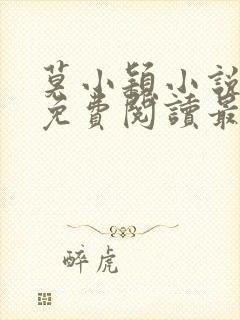 莫小穎小說
免費閱讀最
醉虎